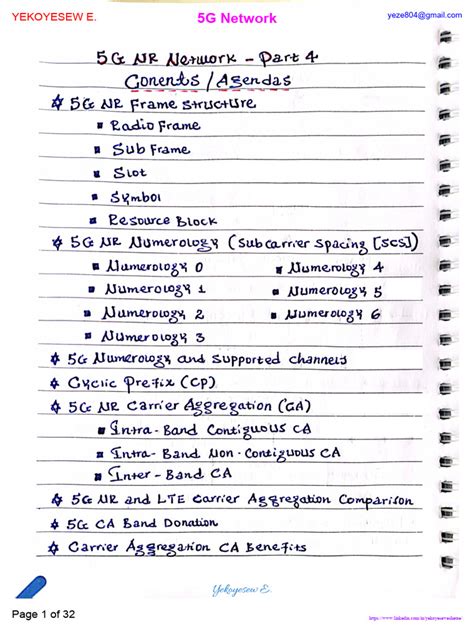 YEKOYESEW E.
5G Network
yeze804@gmail.com
5G NR Network - Part 4
Conents / Agendas
5G NR Frame Structure
Radio Frame
Sub Frame
Slot
Symbol
Resource Block
5G NR Numerology (Subcarrier Spacing [SCS])
Numerology 0
Numerology 4
Numerology 1
Numerology 5
Numerology 2
Numerology 6
Numerology 3
5G Numerology and Supported channels
Cyclic Prefix (CP)
5G NR Carrier Aggregation (CA)
Intra-Band Contiguous CA
Intra-Band Non-Contiguous CA
Inter-Band CA
5G NR and LTE Carrier Aggregation Comparison
5G CA Band Donation
Carrier Aggregation CA Benefits
Yekoyesew E.
Page 1 of 32